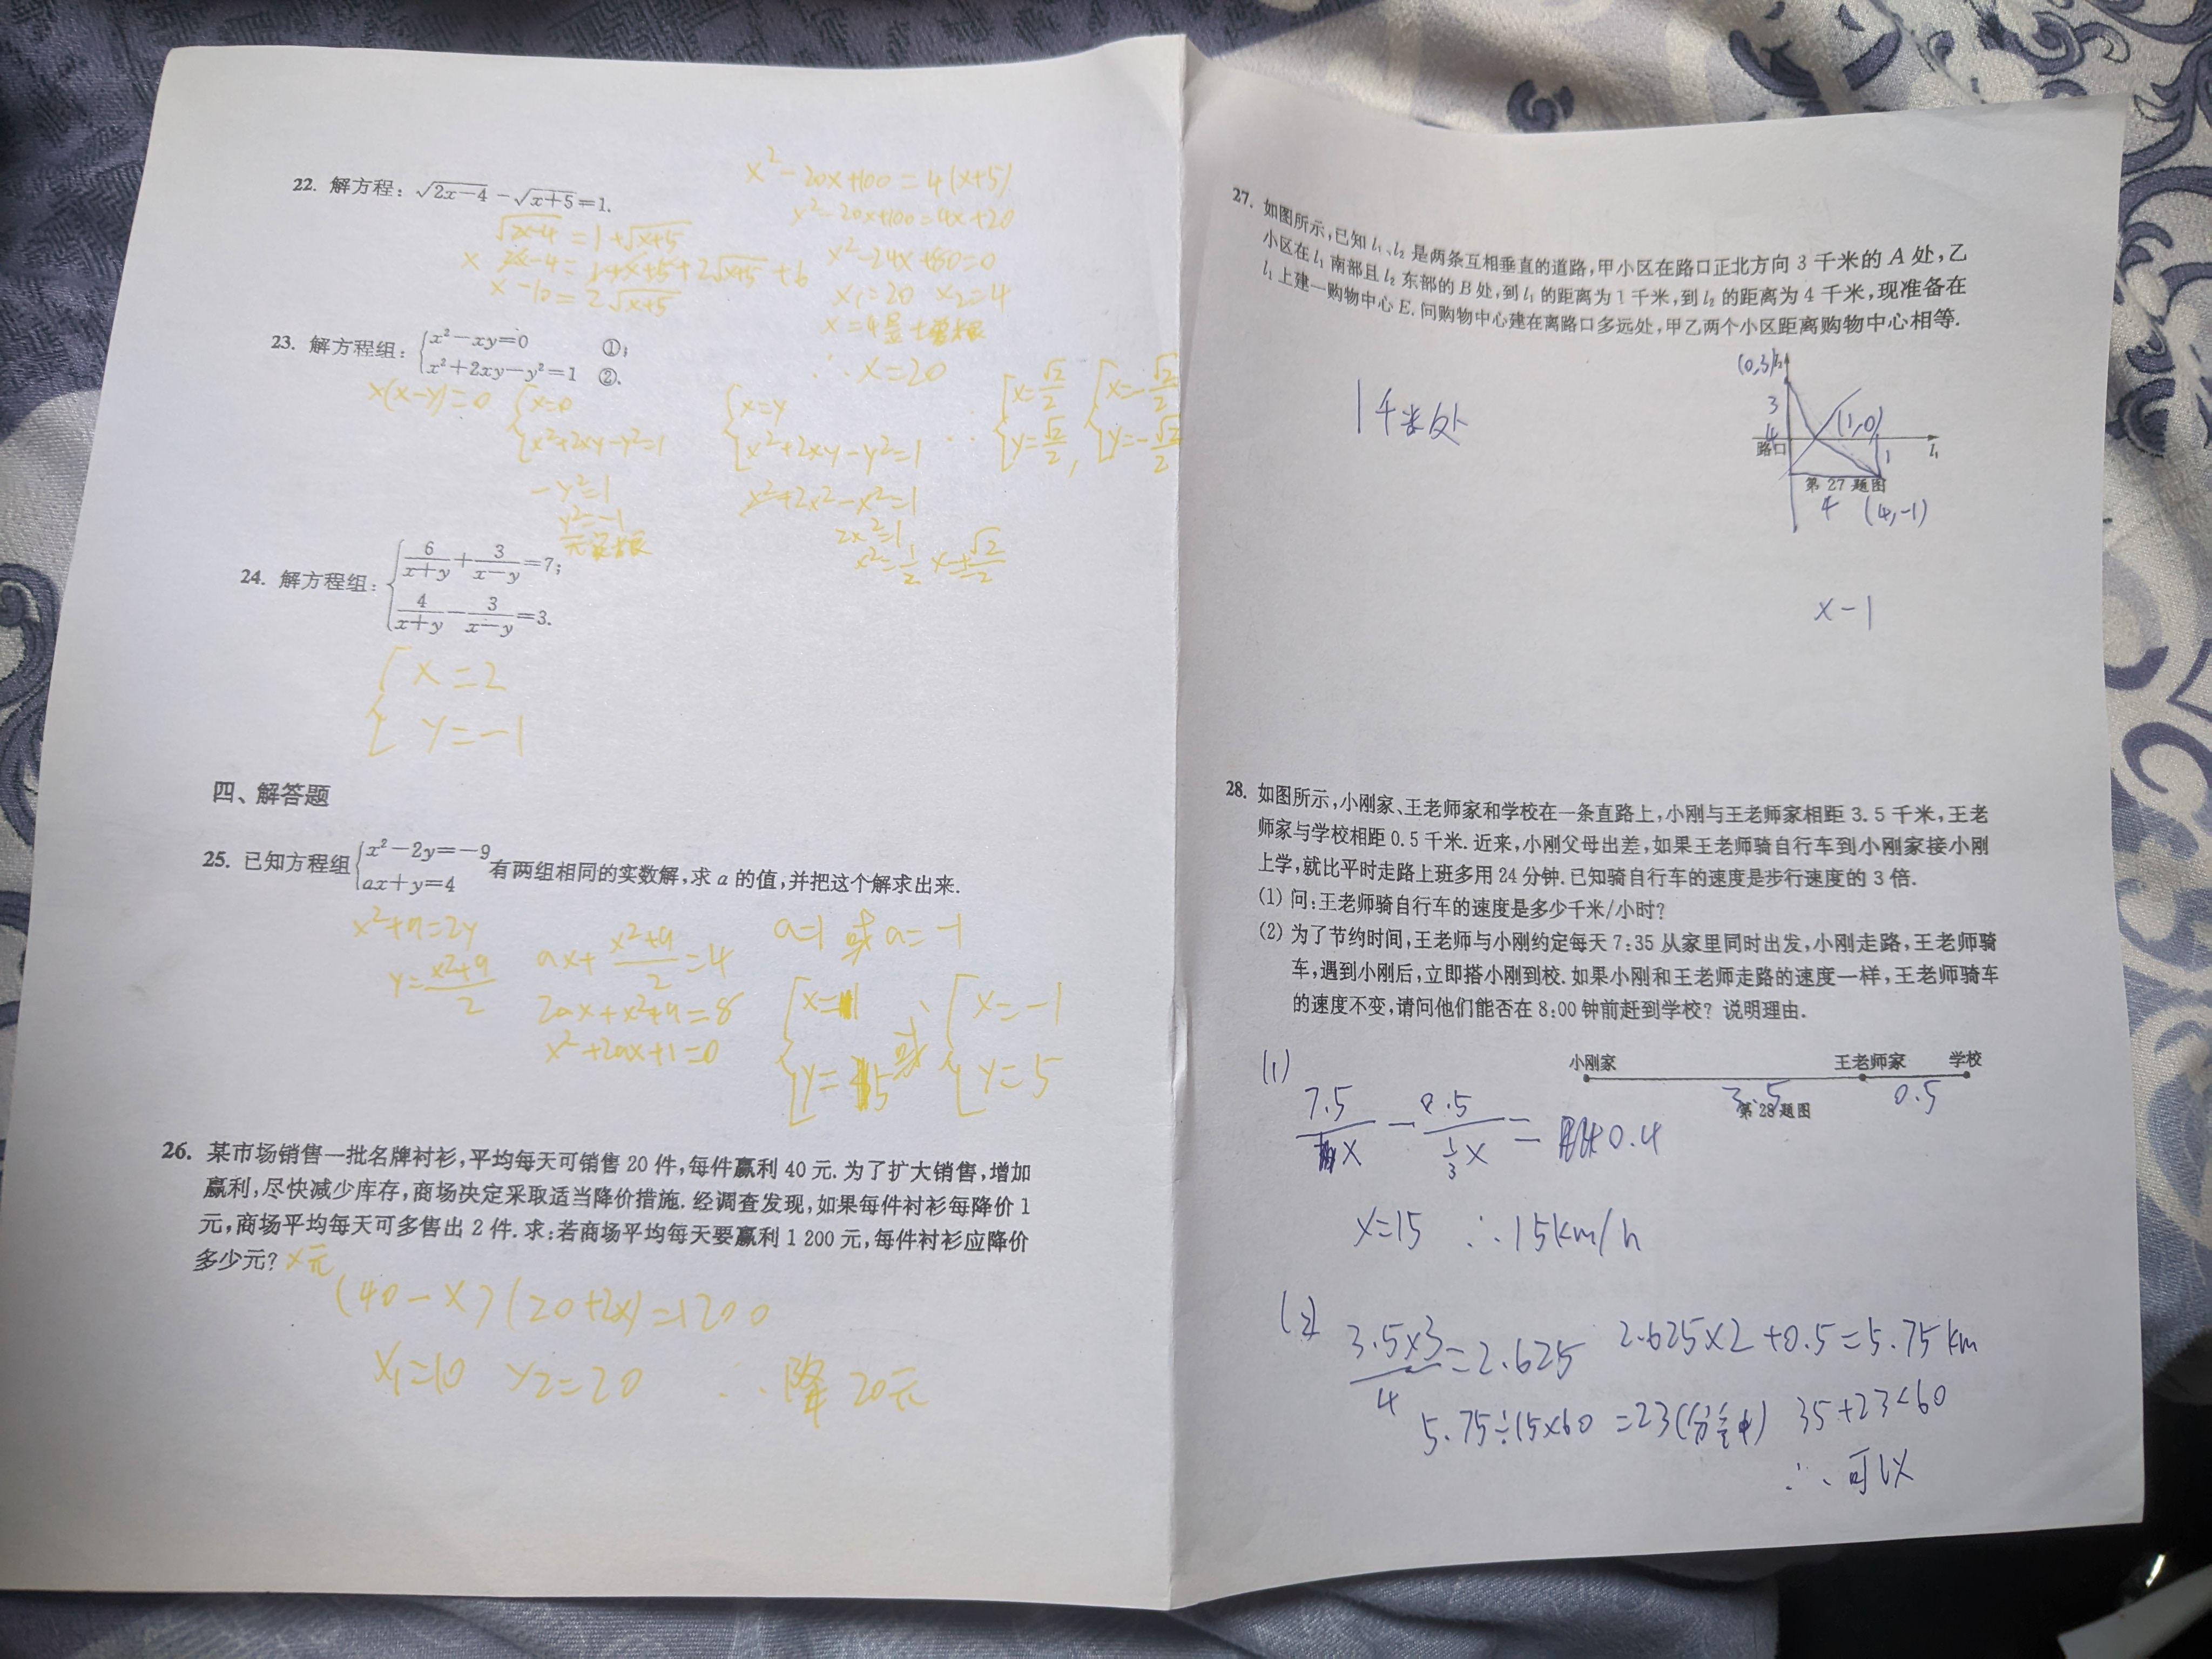 22. 解方程：√(2x−4) −√(x+5)=1.
√(2x-4) = 1+√(x+5)
x-10=2√(x+5)
x²-20x+100=4(x+5)
x²-20x+100=4x+20
x²-24x+80=0
x₁=20 x₂=4
x=4是增根
∴x=20
23. 解方程组：{x²−xy=0 ①；
x²+2xy−y²=1 ②.
x(x-y)=0
{x=0
x²+2xy-y²=1
-y²=1
y²=-1
{x=y
x²+2xy-y²=1
x²+2x²-x²=1
2x²=1
x²=1/2 x=±√2/2
∴{x=√2/2
y=√2/2,
{x=-√2/2
y=-√2/2
24. 解方程组：{6/(x+y)+3/(x−y)=7；
4/(x+y)−3/(x−y)=3.
{x=2
y=-1
四、解答题
25. 已知方程组{x²−2y=−9
ax+y=4 有两组相同的实数解,求 a 的值,并把这个解求出来.
x²+9=2y
y=(x²+9)/2
ax+(x²+9)/2=4
2ax+x²+9=8
x²+2ax+1=0
a=1或a=-1
{x=1
y=5
或
{x=-1
y=5
26. 某市场销售一批名牌衬衫,平均每天可销售 20 件,每件赢利 40 元.为了扩大销售,增加
赢利,尽快减少库存,商场决定采取适当降价措施.经调查发现,如果每件衬衫每降价 1
元,商场平均每天可多售出 2 件.求:若商场平均每天要赢利 1 200 元,每件衬衫应降价
多少元? x元
(40-x)(20+2x)=1200
x₁=10 x₂=20 ∴降20元
27. 如图所示,已知 l₁、l₂ 是两条互相垂直的道路,甲小区在路口正北方向 3 千米的 A 处,乙
小区在 l₁ 南部且 l₂ 东部的 B 处,到 l₁ 的距离为 1 千米,到 l₂ 的距离为 4 千米,现准备在
l₁ 上建一购物中心 E.问购物中心建在离路口多远处,甲乙两个小区距离购物中心相等.
1千米处
(0,3) l₂
3
(1,0)
路口
1
l₁
第 27 题图
4 (4,-1)
x-1
28. 如图所示,小刚家、王老师家和学校在一条直路上,小刚与王老师家相距 3.5 千米,王老
师家与学校相距 0.5 千米.近来,小刚父母出差,如果王老师骑自行车到小刚家接小刚
上学,就比平时走路上班多用 24 分钟.已知骑自行车的速度是步行速度的 3 倍.
(1) 问:王老师骑自行车的速度是多少千米/小时?
(2) 为了节约时间,王老师与小刚约定每天 7:35 从家里同时出发,小刚走路,王老师骑
车,遇到小刚后,立即搭小刚到校.如果小刚和王老师走路的速度一样,王老师骑车
的速度不变,请问他们能否在 8:00 钟前赶到学校? 说明理由.
小刚家 王老师家 学校
3.5 0.5
第 28 题图
(1)
7.5/x - 0.5/(1/3x) = 0.4
x=15 ∴15km/h
(2)
3.5×3/4=2.625 2.625×2+0.5=5.75km
5.75÷15×60=23(分钟) 35+23<60
∴可以